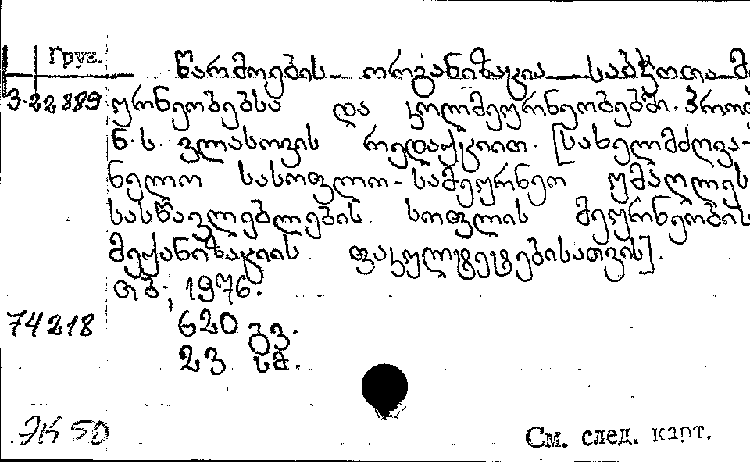 Груз.
წარმოების ორგანიზაცია საბჭოთა მ
3-22889 ურნეობებსა და კოლმეურნეობებში. პროფ
ნ.ს. ვლასოვის რედაქციით. [სახელმძღვა-
ნელო სასოფლო-სამეურნეო უმაღლეს
სასწავლებლების სოფლის მეურნეობის
მექანიზაციის ფაკულტეტებისათვის].
თბ., 1976.
74218 620 გვ.
23 სმ.
ЭК 50
См. след. карт.